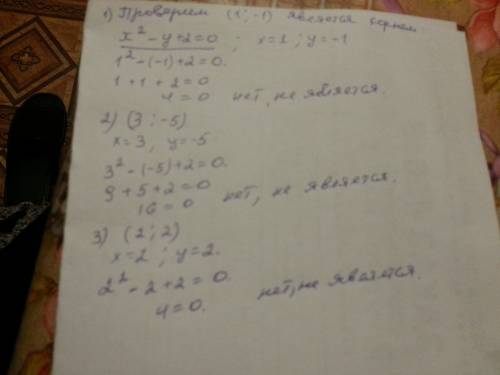 1) Проверяем (1; -1) является корнем
x² - y + 2 = 0 ; x = 1 ; y = -1
1² - (-1) + 2 = 0.
1 + 1 + 2 = 0
4 = 0 нет, не является.
2) (3 ; -5)
x = 3, y = -5
3² - (-5) + 2 = 0.
9 + 5 + 2 = 0
16 = 0 нет, не является.
3) (2 ; 2)
x = 2 ; y = 2.
2² - 2 + 2 = 0.
4 = 0. нет, не является.